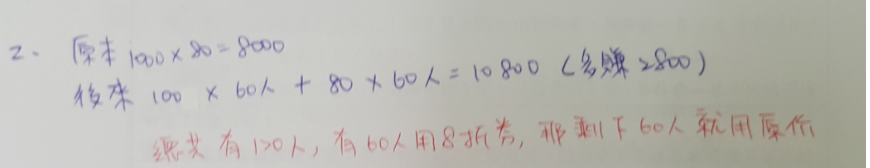 2. 原本 1000 × 80 = 8000
後來 100 × 60人 + 80 × 60人 = 10800 (多賺2800)
總共有120人, 有60人用8折券, 那剩下60人就用原價